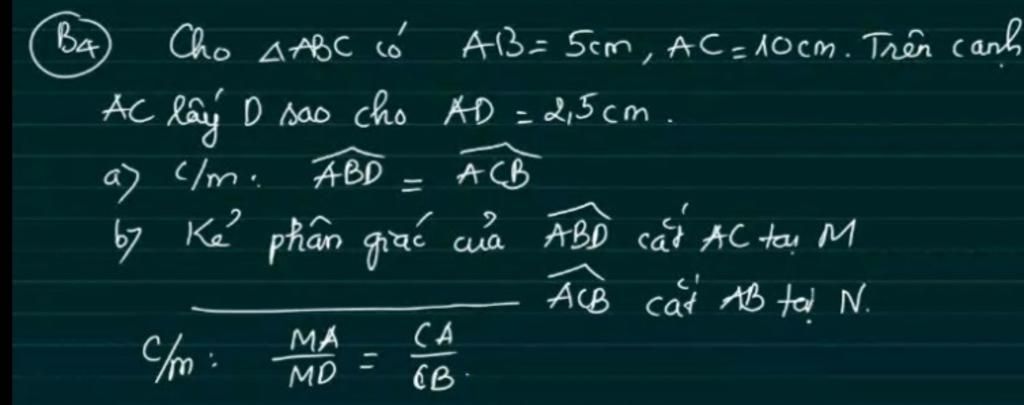 B4 Cho △ABC có AB = 5cm, AC = 10cm. Trên cạnh
AC lấy D sao cho AD = 2,5cm.
a) c/m: \widehat{ABD} = \widehat{ACB}
b) Kẻ phân giác của \widehat{ABD} cắt AC tại M
——— \widehat{ACB} cắt AB tại N.
C/m: \frac{MA}{MD} = \frac{CA}{CB}.